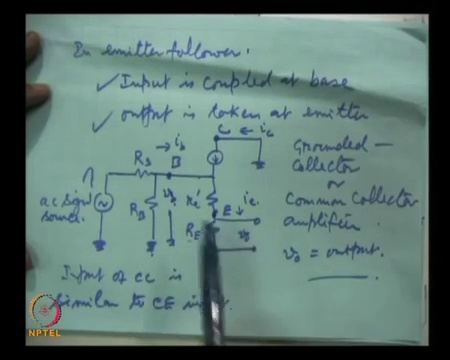 In emitter follower.
✓ Input is coupled at base
✓ output is taken at emitter
C ← ic
→ ib
B
Rs
ac signal
source.
RB
re'
E ↓ ie
RE
vo
Grounded —
Collector
or
Common Collector
amplifier.
vo = output.
Input of CC is
similar to CE
NPTEL